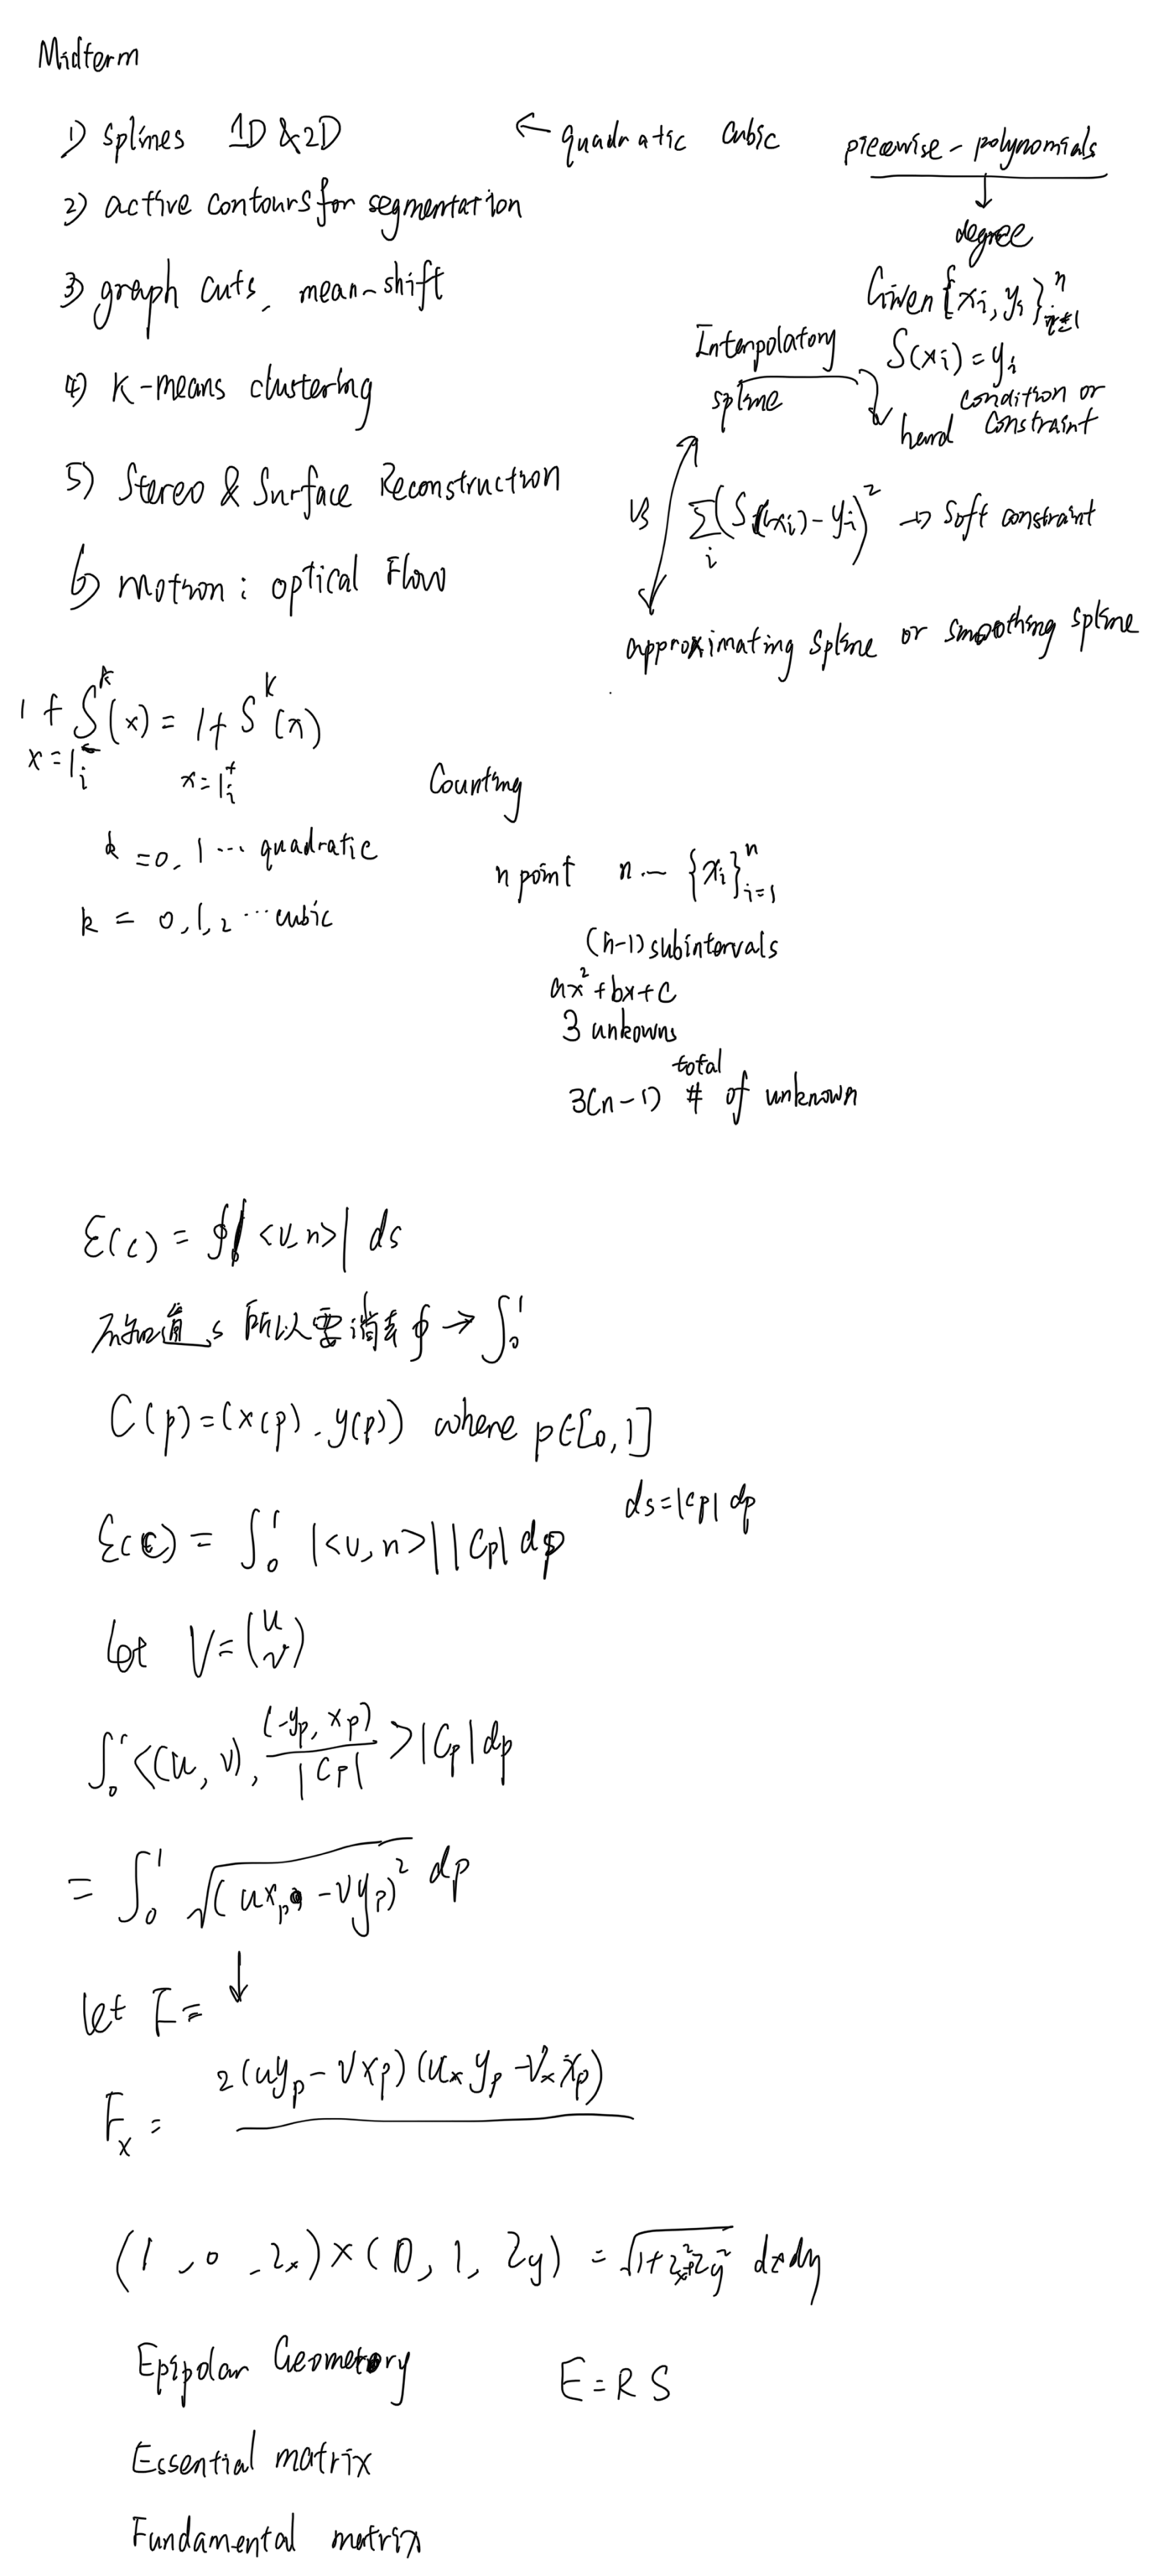 Midterm
1) Splines 1D & 2D ← quadratic cubic
2) active contours for segmentation
3) graph cuts, mean-shift
4) K-means clustering
5) Stereo & Surface Reconstruction
6) motion : optical Flow
piecewise - polynomials
↓
degree
Given {xi, yi}ⁿi=1
Interpolatory spline
S(xi) = yi
hard condition or constraint
vs
∑i (S(xi) - yi)² → soft constraint
approximating spline or smoothing spline
lt S^k(x) = lt S^k(x)
x=li^- x=li^+
k = 0, 1 ... quadratic
k = 0, 1, 2 ... cubic
Counting
n point n — {xi}ⁿi=1
(n-1) subintervals
ax² + bx + c
3 unkowns
3(n-1) total # of unknown
E(c) = ∮ |<v, n>| ds
不知道 s 所以要消去 ∮ → ∫₀¹
C(p) = (x(p), y(p)) where p∈[0, 1]
ds = |Cp| dp
E(C) = ∫₀¹ |<v, n>| |Cp| dp
let V = (u v)
∫₀¹ <(u, v), (-yp, xp) / |Cp| > |Cp| dp
= ∫₀¹ √(uxp - vyp)² dp
↓
let F =
Fx = 2(uyp - vxp)(ux yp - vx xp)
(1, 0, Zx) × (0, 1, Zy) = √1+Zx²+Zy² dxdy
Epipolar Geometory
E = R S
Essential matrix
Fundamental matrix